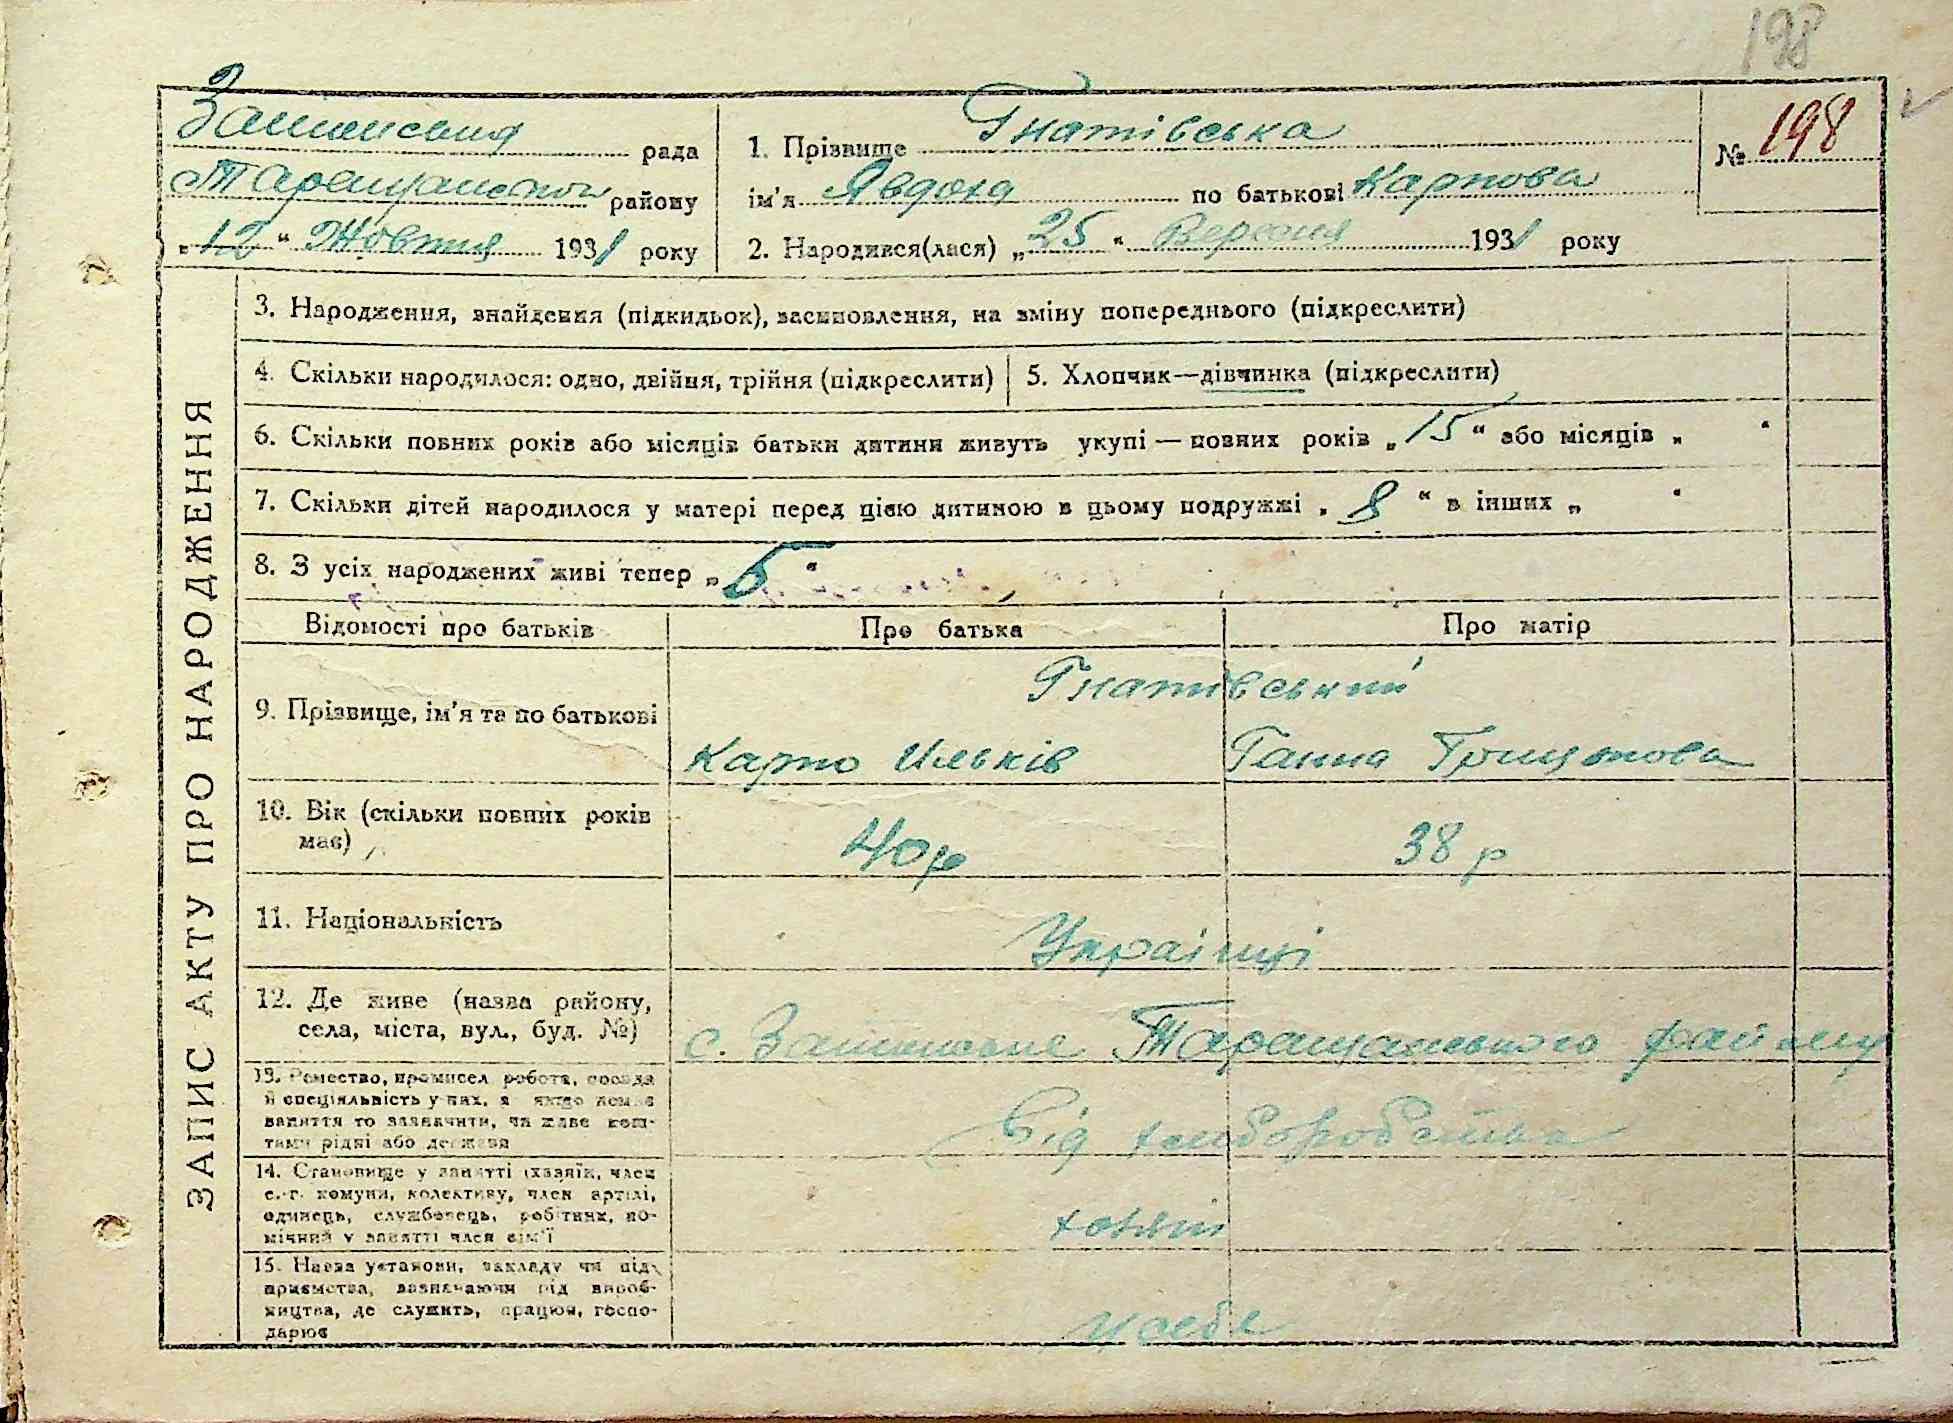 198
Рада
рада
1. Прізвище Гнатівська
№ 198
Таращанського району
ім'я Явдоха по батькові Карпова
„12“ Жовтня 1931 року
2. Народився(лася) „25“ Вересня 1931 року
ЗАПИС АКТУ ПРО НАРОДЖЕННЯ
3. Народження, знайдення (підкидьок), засиновлення, на зміну попереднього (підкреслити)
4. Скільки народилося: одно, двійня, трійня (підкреслити)
5. Хлопчик—дівчинка (підкреслити)
6. Скільки повних років або місяців батьки дитини живуть укупі — повних років „15“ або місяців „ “
7. Скільки дітей народилося у матері перед цією дитиною в цьому подружжі „8“ в інших „ “
8. З усіх народжених живі тепер „5“
Відомості про батьків
Про батька
Про матір
9. Прізвище, ім'я та по батькові
Гнатівський
Карпо Ильків
Ганна
10. Вік (скільки повних років має)
40 р
38 р
11. Національність
Українці
12. Де живе (назва району,
села, міста, вул., буд. №)
с. Таращанського району
13. Ремество, промисел робота, посада
й спеціяльність у них, а якщо немає
заняття то зазначити, чи живе кош-
тами рідні або держави
Від хліборобства
14. Становище у занятті (хазяїн, член
с.-г. комуни, колективу, член артілі,
одинець, службовець, робітник, по-
мічний у занятті член сім'ї
15. Назва установи, закладу чи під-
приємства, зазначаючи рід вироб-
ництва, де служить, працює, госпо-
дарює
у себе